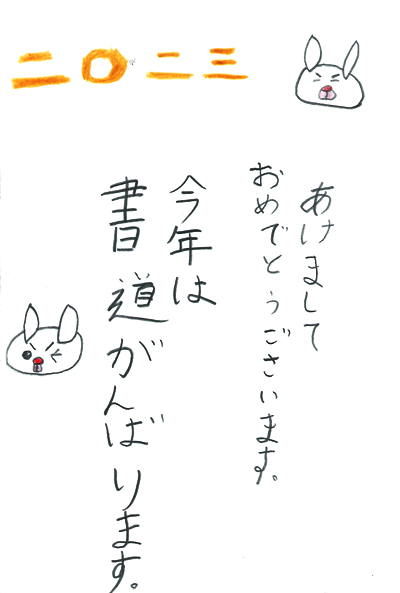 二〇二三
あけまして
おめでとうございます。
今年は
書道がんばります。